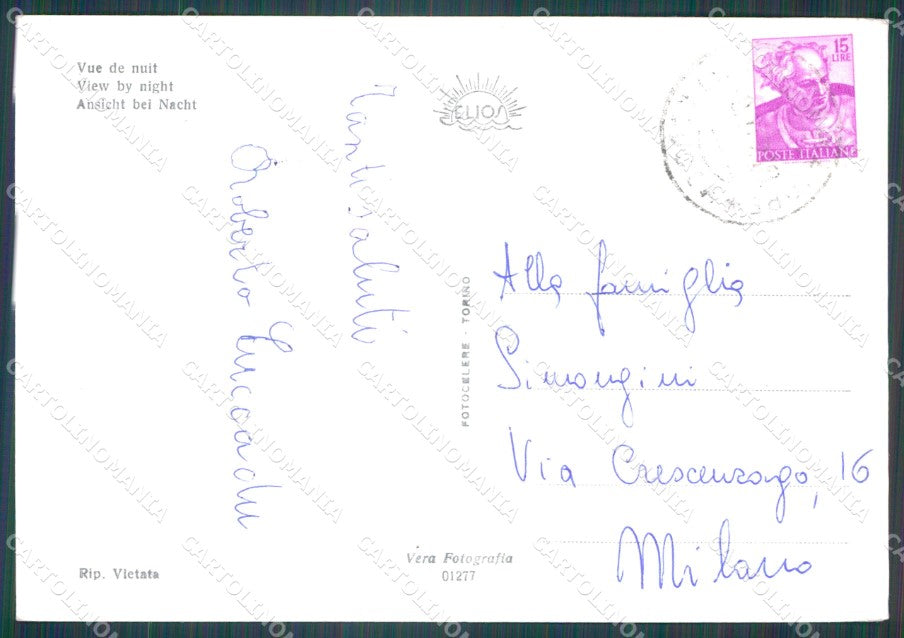 Vue de nuit
View by night
Ansicht bei Nacht
ELIOS
15
LIRE
POSTE ITALIANE
Tanti saluti
Roberto
FOTOCELERE - TORINO
Alla famiglia
Simongini
Via Crescenzago, 16
Milano
Vera Fotografia
01277
Rip. Vietata
CARTOLINOMANIA